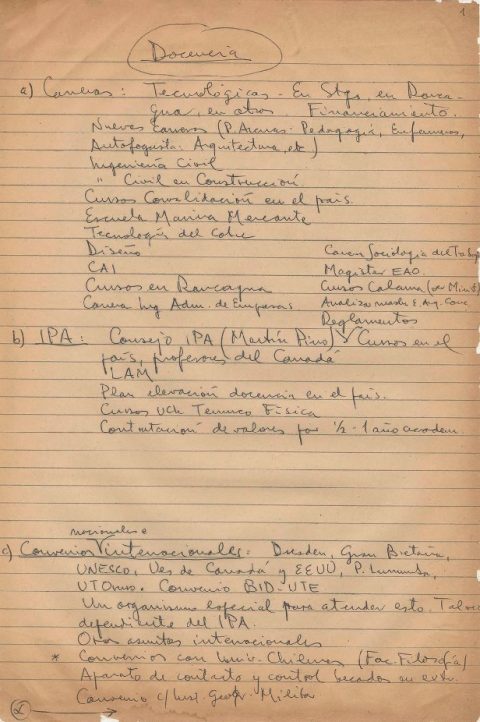 1
Docencia
a) Carreras: Tecnológicas - En Stgo, en Ranca-
gua, en otros. Financiamiento.
Nuevas carreras (P. Arenas: Pedagogía, Enfermeros,
Antofagasta: Arquitectura, etc)
Ingeniería Civil
" Civil en Construcción
Cursos Convalidación en el país.
Escuela Marina Mercante
Tecnología del Cobre
Diseño Carrera Sociología del Trabajo
CAI Magister EAO.
Cursos en Rancagua Cursos Calama (
Carrera Ing Adm. de Empresas Analizar
Reglamentos
b) IPA: Consejo IPA (Martín Pino) Cursos en el
país, profesores del Canadá
LAM
Plan elevación docencia en el país.
Cursos UCh Temuco Física
Contratación de valores por 1/2 - 1 año academ.
nacionales e
c) Convenios internacionales: Dresden, Gran Bretaña,
UNESCO, Ues de Canadá y EEUU, P. Lumumba,
Convenio BID-UTE
Un organismo especial para atender esto. Talvez
dependiente del IPA.
Otros asuntos internacionales
* Convenios con Univ. Chilenas (Fac. Filosofía)
Aparato de contacto y control becados en extr.
Convenio c/ Inst. Geogr. Militar